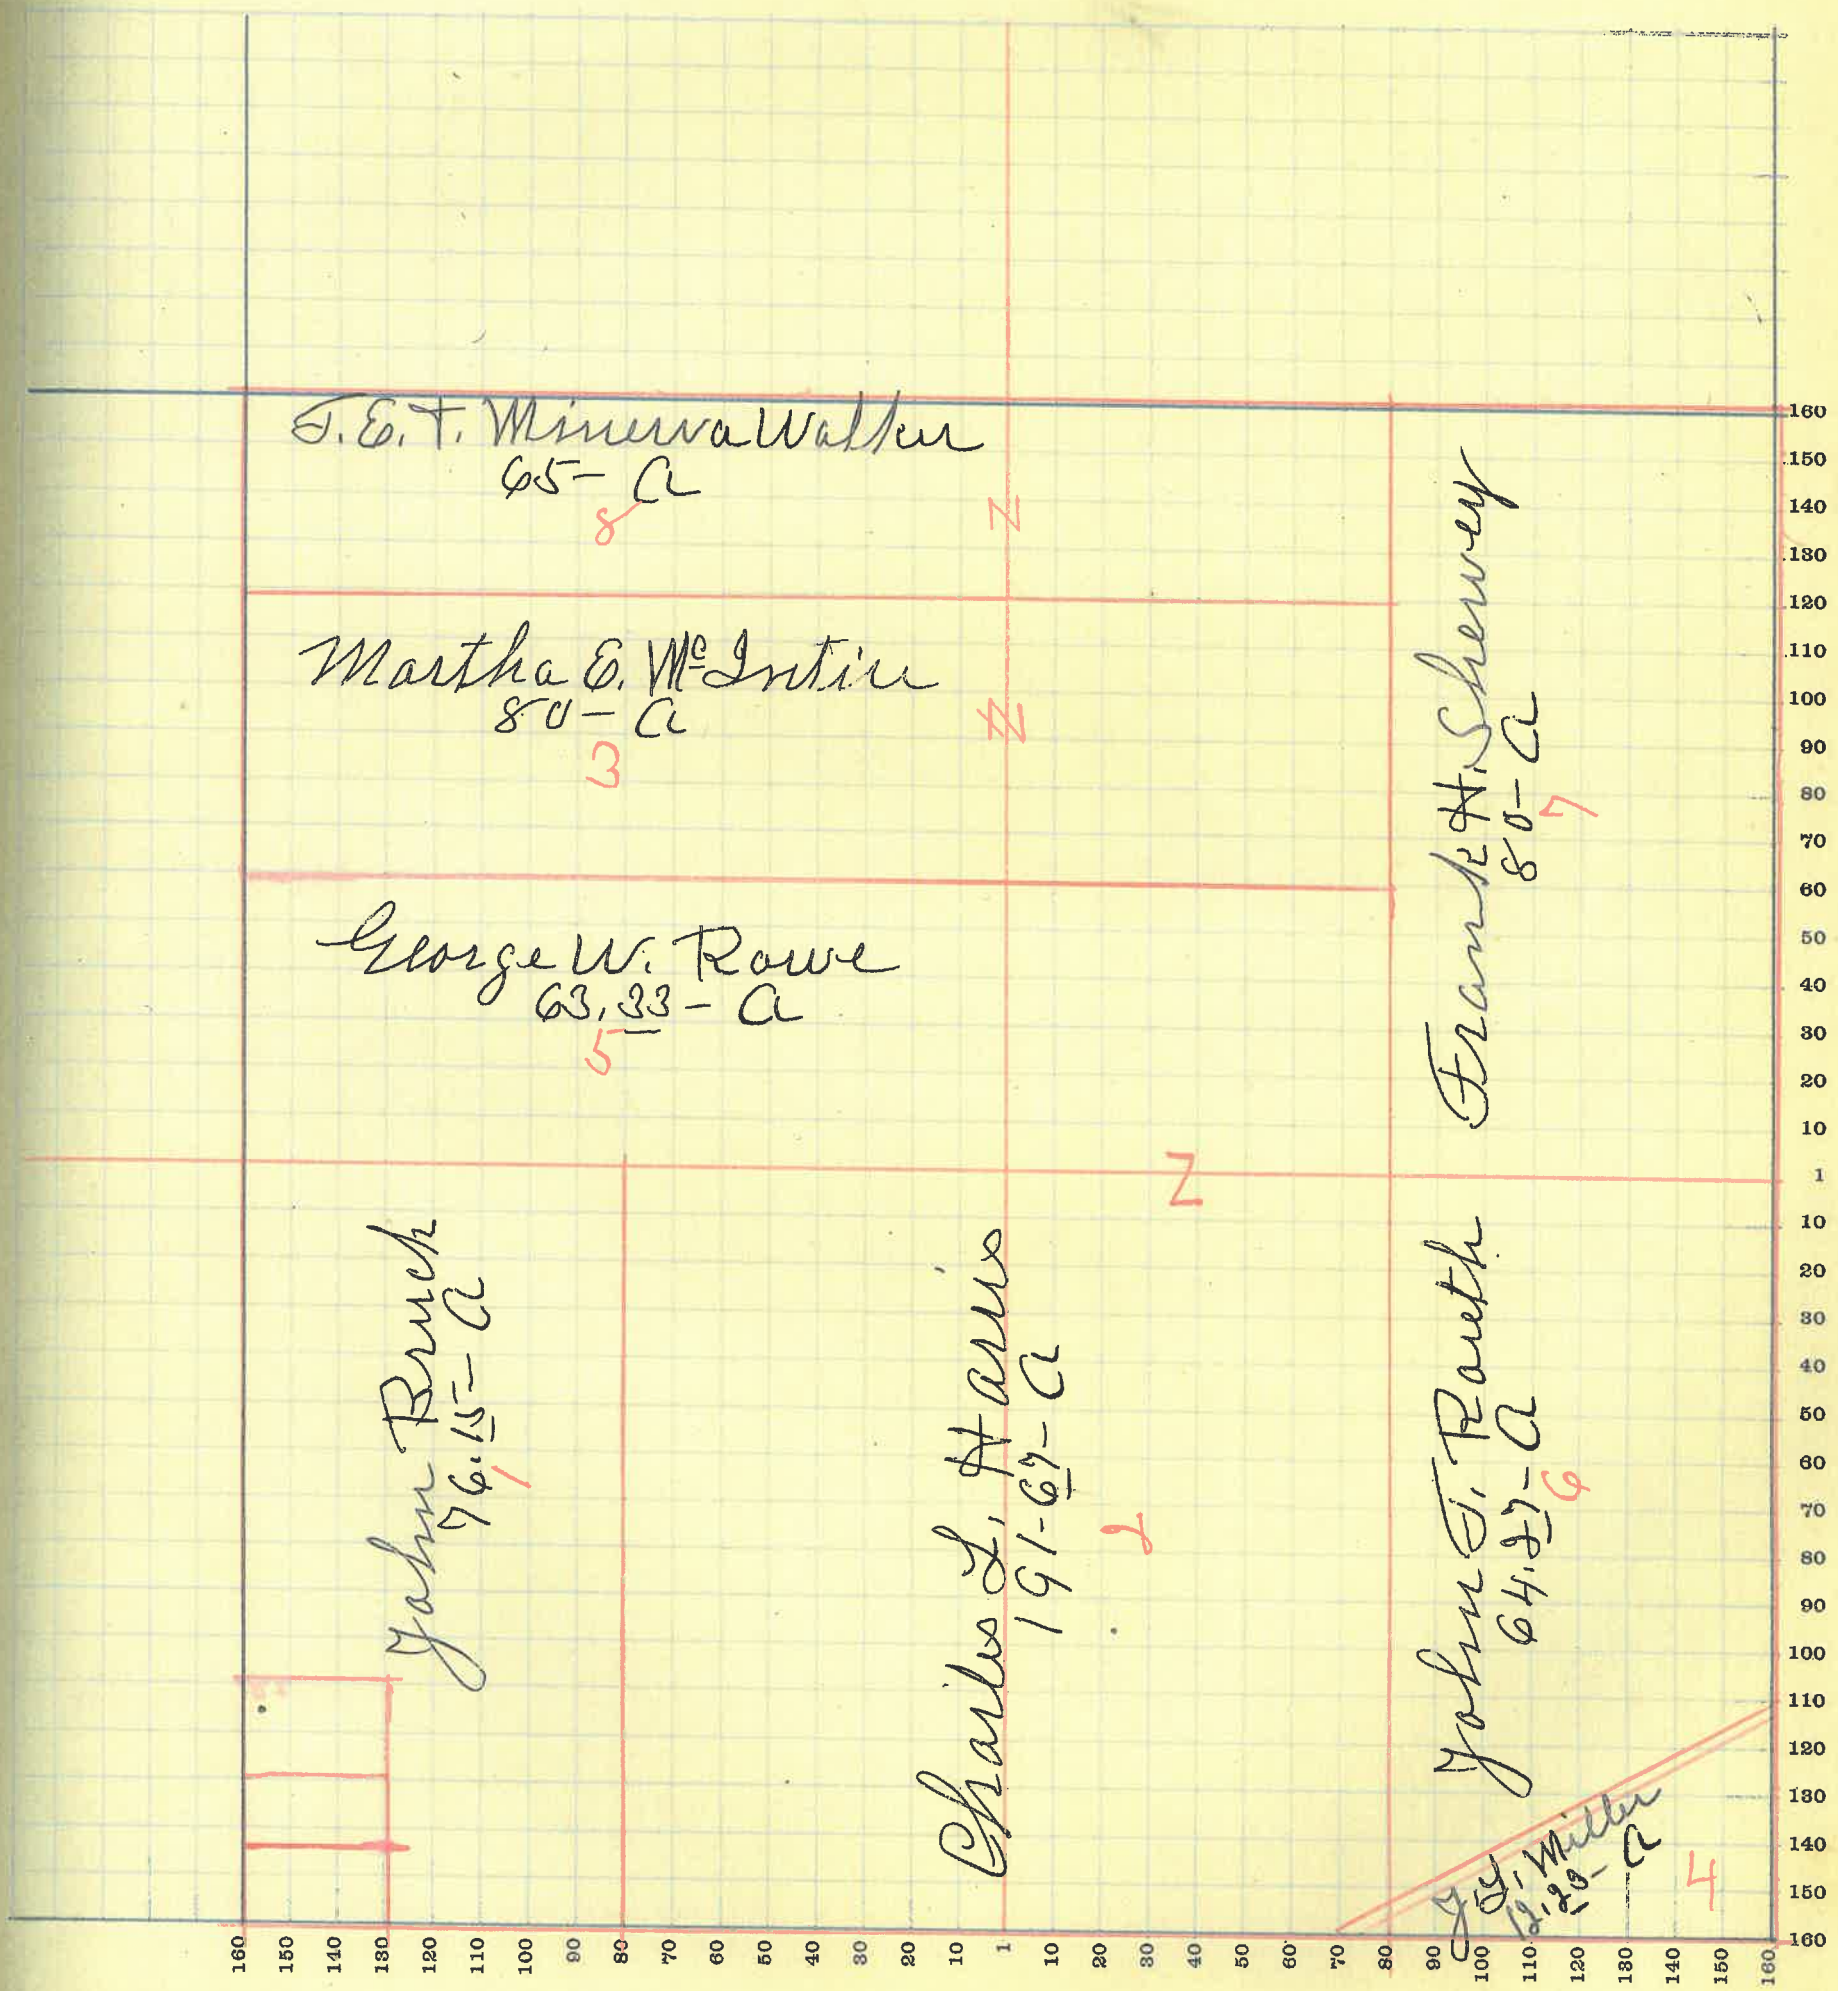 J. E. T. Minerva Walker
65- A
8
Z
Martha E. McIntire
80- A
3
Z
George W. Rowe
63.33- A
5
Frank H. Shewey
80- A
7
Z
John Bruch
76.15- A
1
Charles L. Harris
191-67- A
2
John T. Raueth
64.27- A
6
J. Y. Miller
12.20- A
4
160
150
140
130
120
110
100
90
80
70
60
50
40
30
20
10
1
10
20
30
40
50
60
70
80
90
100
110
120
130
140
150
160
160 150 140 130 120 110 100 90 80 70 60 50 40 30 20 10 1 10 20 30 40 50 60 70 80 90 100 110 120 130 140 150 160